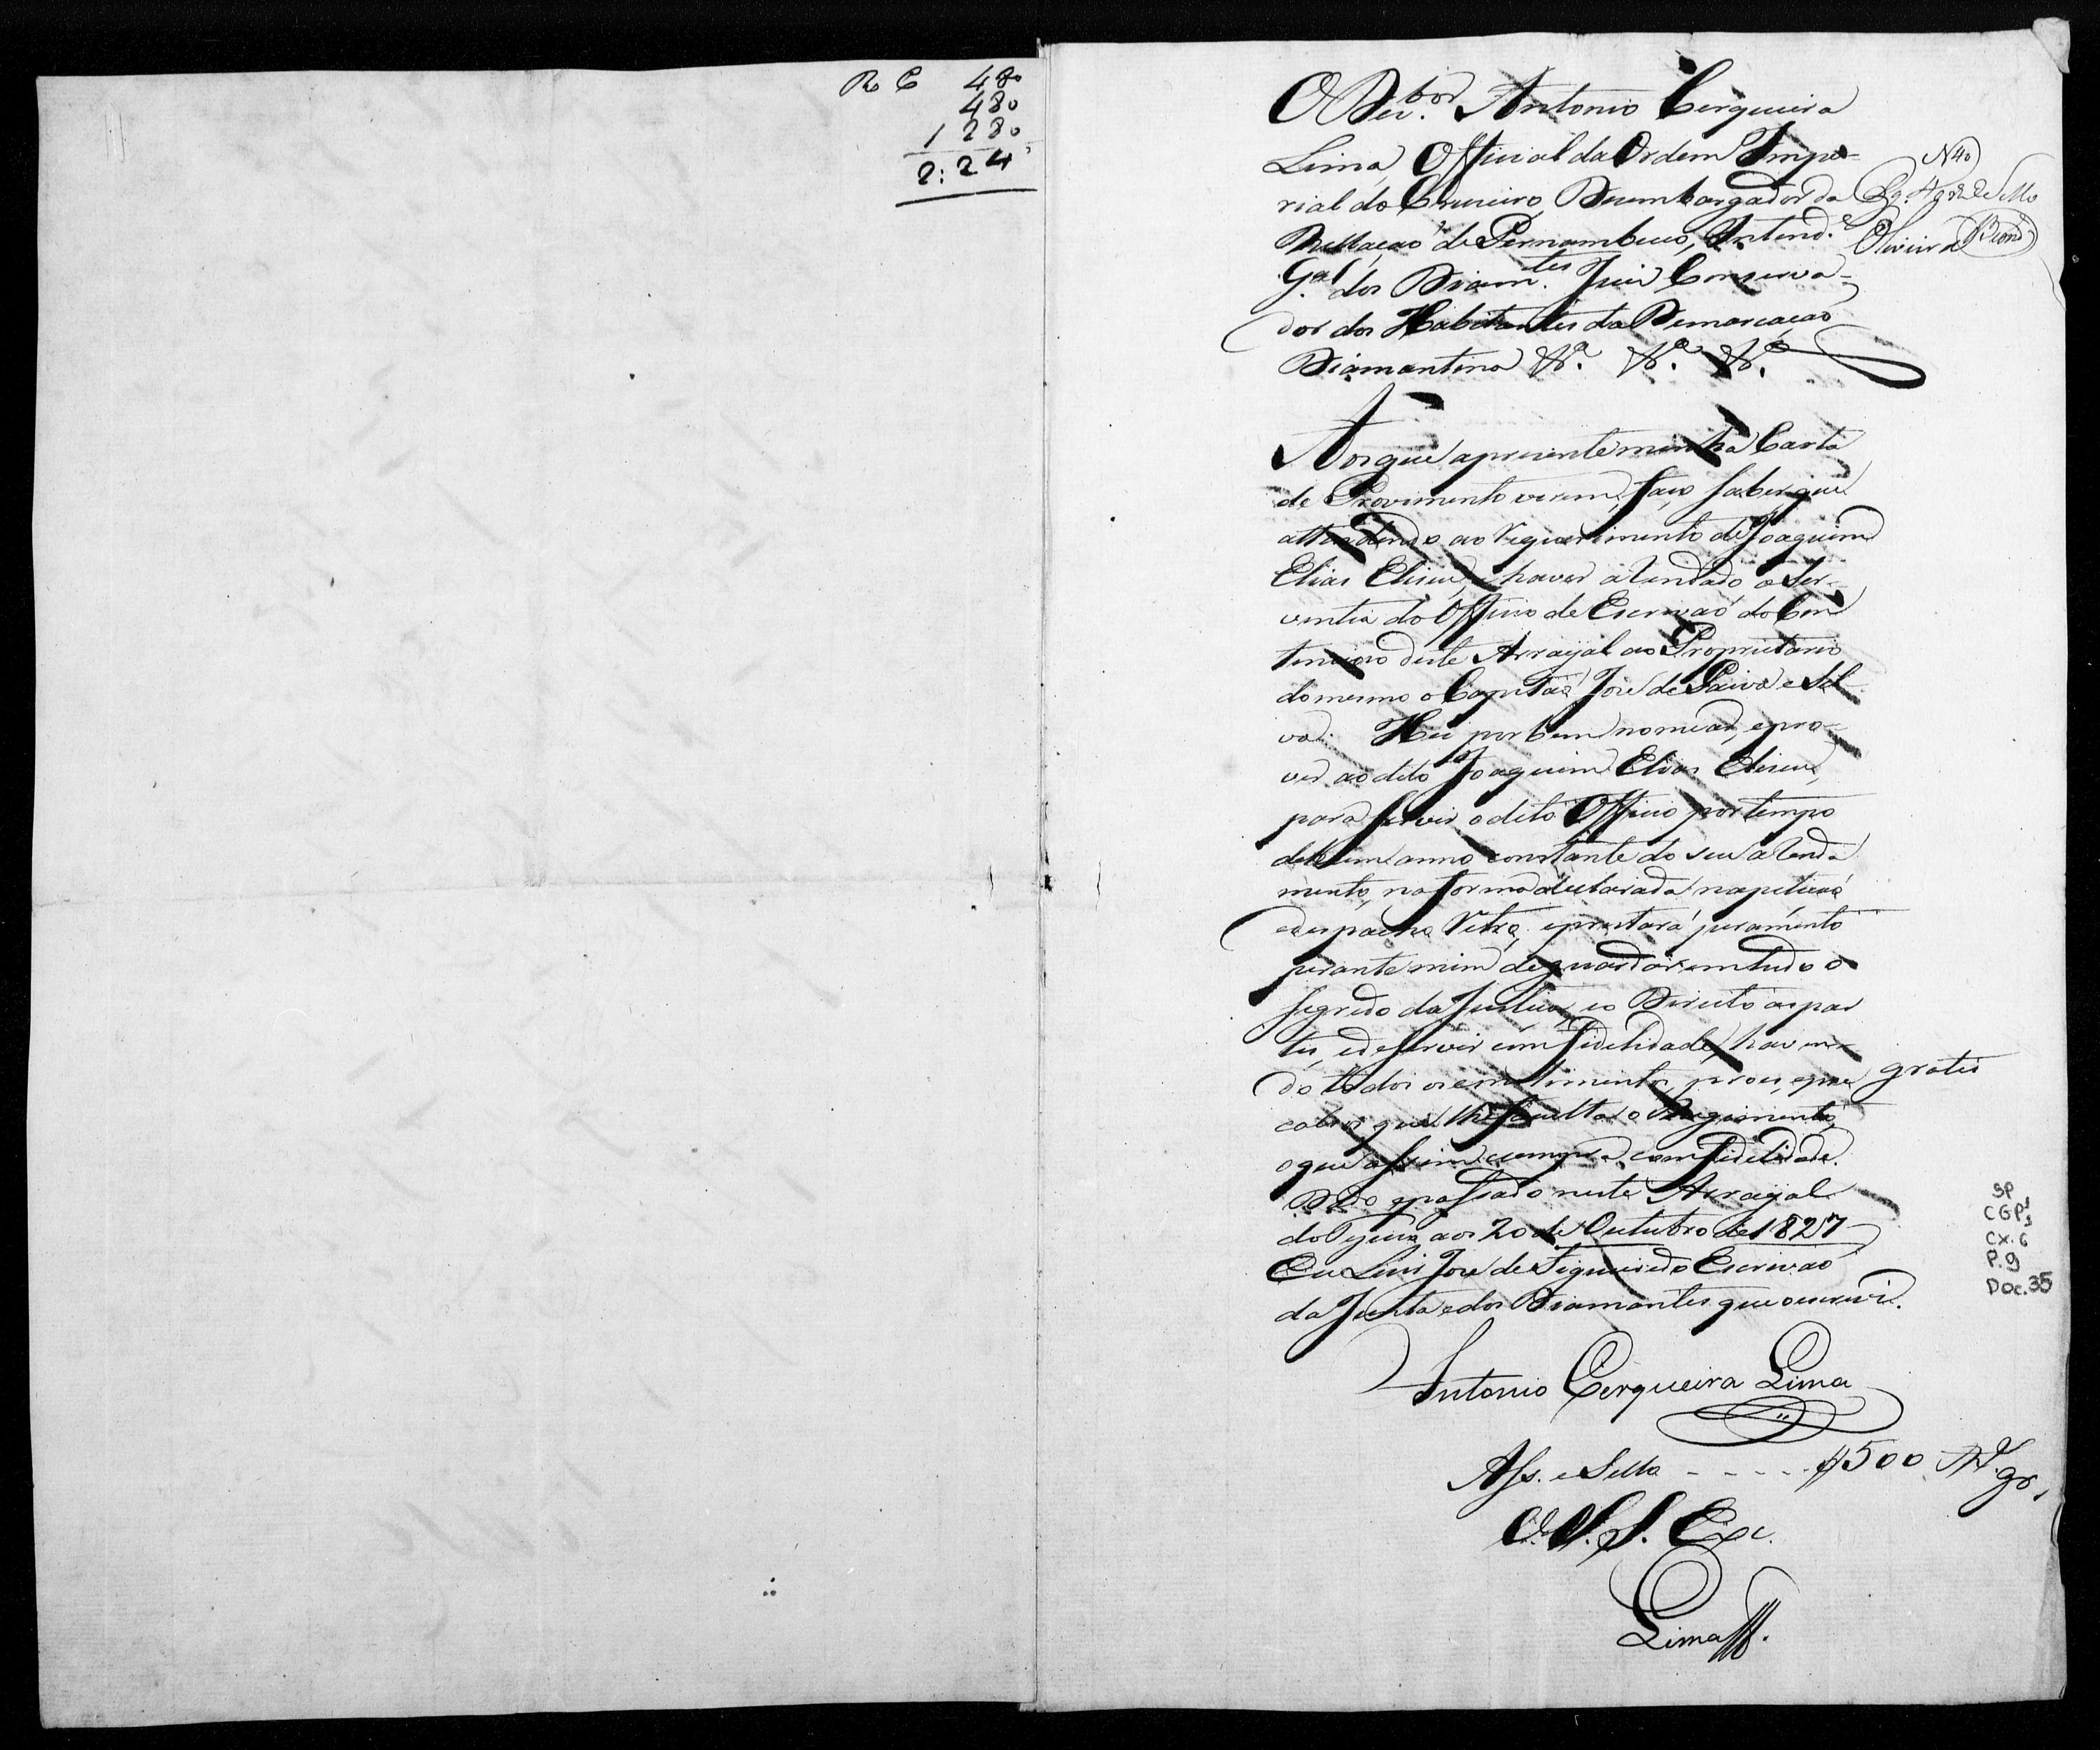 Rs C 480
480
1 280
2:24
O Dez.bor Antonio Cerqueira
Lima, Official da Ordem Impe-
rial do Cruzeiro, Dezembargador da
Rellação de Pernambuco, Intend.e
G.al dos Diam.tes Juiz Conserva-
dor dos Habitantes da Demarcação
Diamantina &.a &.a &.a
N 40
Pg. 40 rs de Sello
Oliveira
Aos que a prezente minha Carta
de Provimento virem, faço saber, que
attendendo ao requerimento de Joaquim
Elias Elizeu, e haver arendado a Ser-
ventia do Officio de Escrivaõ do Con
tencioso deste Arraýal ao Proprietario
do mesmo o Capitaõ Joze de Paiva e Sil-
va: Hei por bem nomear, e pro-
ver ao dito Joaquim Elias Elizeu,
para servir o dito Officio por tempo
de hum anno constante do seu arenda
mento, na forma declarada na petiçaõ
e despacho retro, e prestará juramento
perante mim de guardar em tudo o
segredo da Justiça, e o Direito as par
tes, e de servir com fidelidade, haven-
do todos os emolimentos, proes, e per
calsos que lhe faculta o Regimento,
o que assim cumpra com fidelidade.
Dado e passado neste Arraýal
do Tejuco aos 20 de Outubro de 1827
Eu Luis Joze de Figueiredo Escrivaõ
da Junta e dos Diamantes que o escrevi.
gratis
SP
CGP1
Cx. 6
P. 9
Doc. 35
Antonio Cerqueira Lima
Ass. e Sello - - - - - $500 gr.
V. S. S. Ex c.
Lima